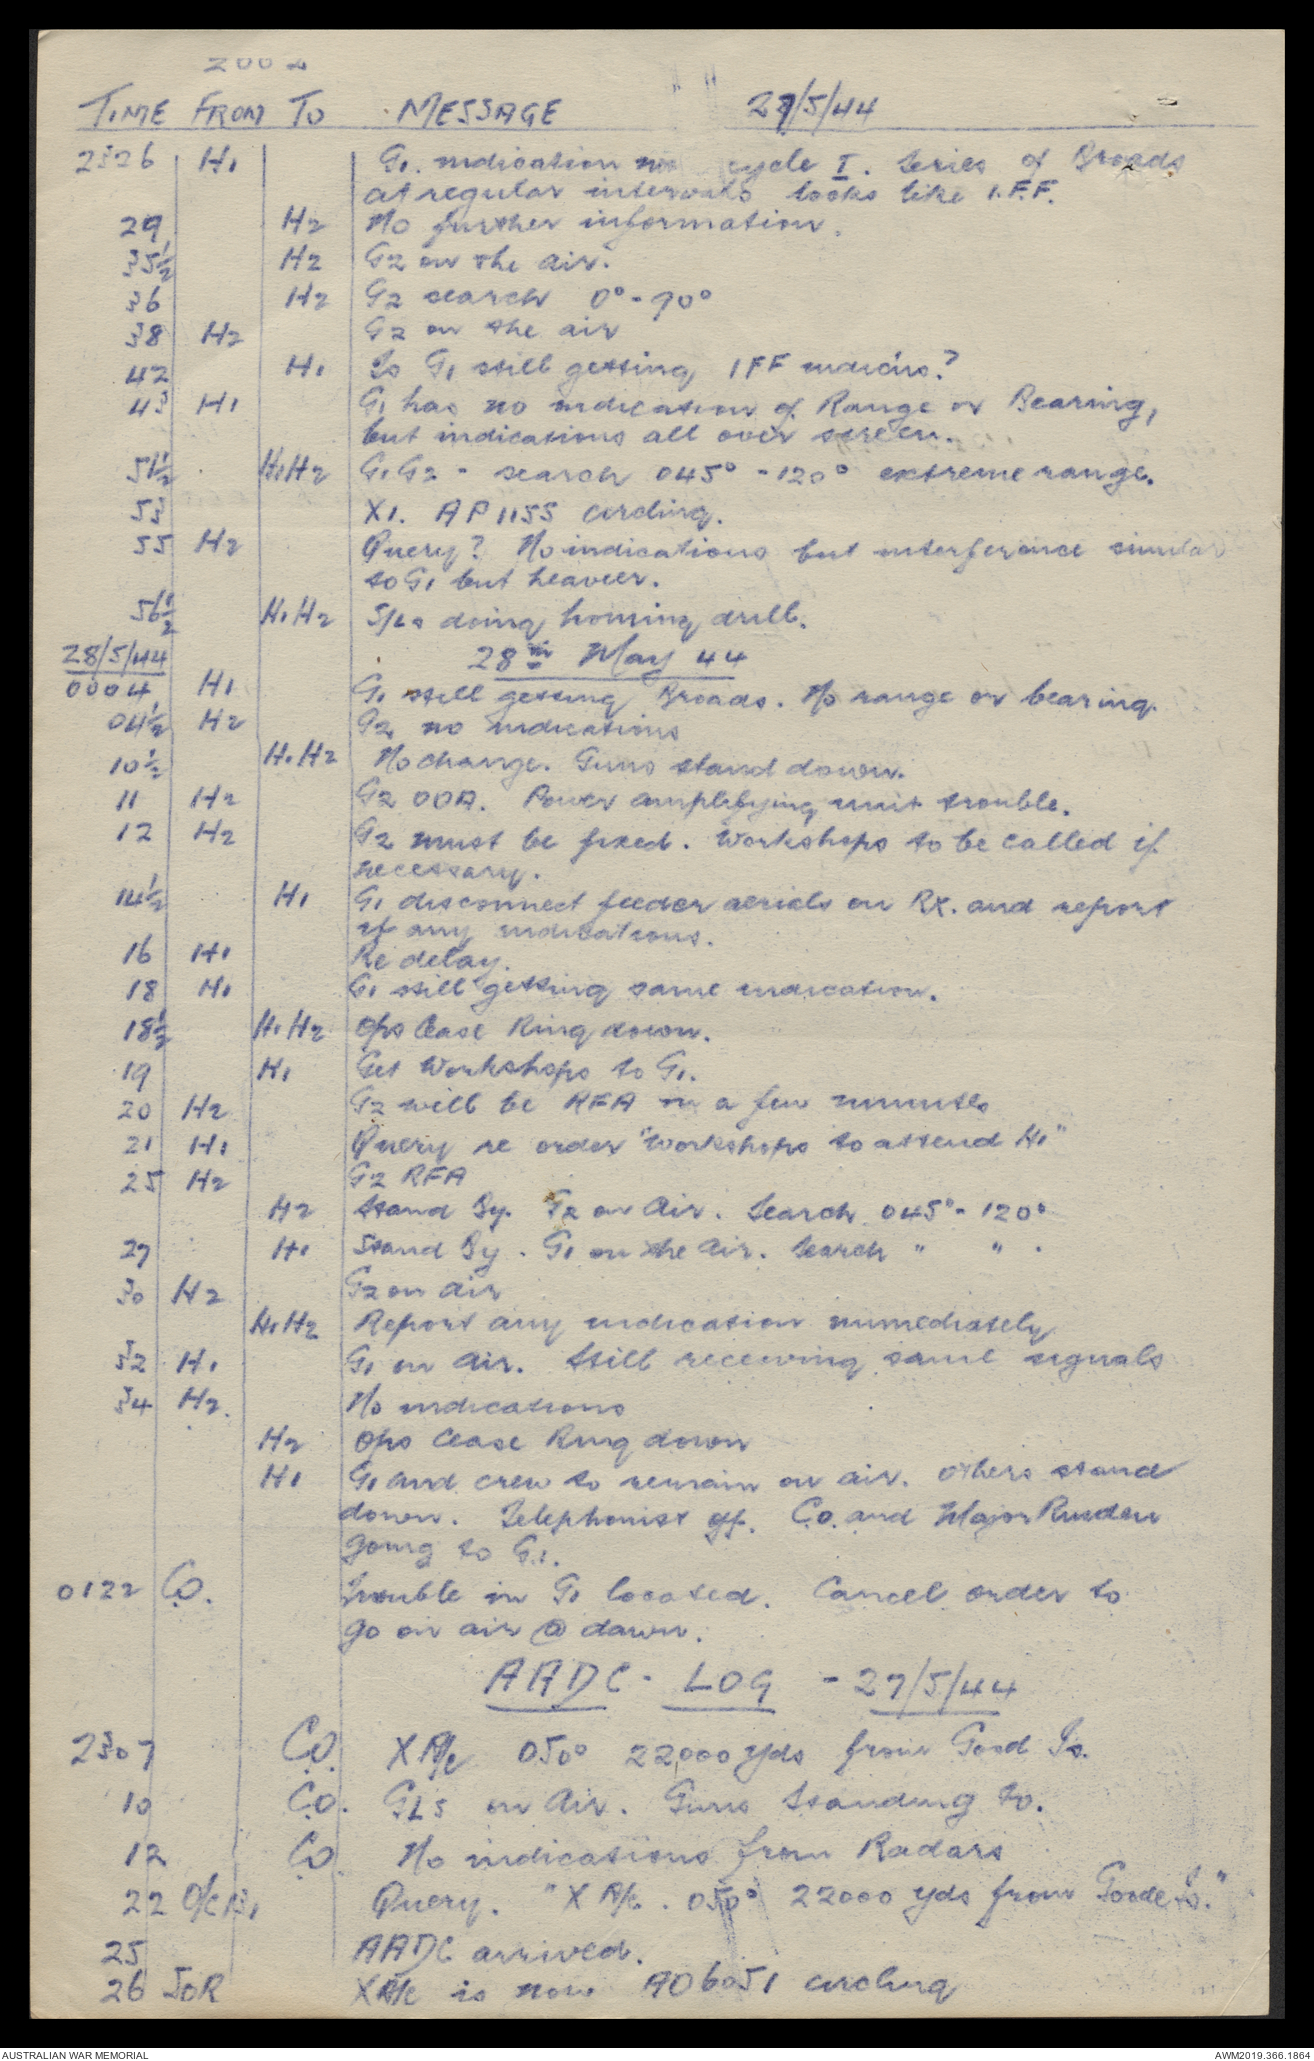 2002
TIME FROM TO MESSAGE 27/5/44
2326 H1 G1. indication no cycle I. Series of Broads
at regular intervals looks like I.F.F.
29 H2 No further information.
35½ H2 G2 on the air.
36 H2 G2 search 0° - 90°
38 H2 G2 on the air
42 H1 Is G1 still getting IFF indic'ns?
43 H1 G1 has no indication of Range or Bearing,
but indications all over screen.
51½ H1H2 G1G2 - search 045° - 120° extreme range.
53 X1. AP1155 circling.
55 H2 Query? No indications but interference similar
to G1 but heavier.
56½ H1H2 S/Ls doing homing drill.
28/5/44 28th May 44
0004 H1 G1 still getting Broads. No range or bearing.
04½ H2 G2 no indications
10½ H1H2 No change. Guns stand down.
11 H2 G2 OOA. Power amplifying unit trouble.
12 H2 G2 must be fixed. Workshops to be called if
necessary.
14½ H1 G1 disconnect feeder aerials on RX. and report
if any indications.
16 H1 Re delay.
18 H1 G1 still getting same indication.
18½ H1H2 Ops Cease Ring down.
19 H1 Get Workshops to G1.
20 H2 G2 will be RFA in a few minutes
21 H1 Query re order "Workshops to attend H1"
25 H2 G2 RFA
H2 Stand By. G2 on Air. Search 045° - 120°
27 H1 Stand By. G1 on the Air. Search " " .
30 H2 G2 on air
H1H2 Report any indication immediately
32 H1 G1 on air. Still receiving same signals
34 H2. No indications
H2 Ops Cease Ring down
H1 G1 and crew to remain on air. Others stand
down. Telephonist off. C.O. and Major
going to G.1.
0122 C.O. Trouble in G1 located. Cancel order to
go on air @ dawn.
AADC - LOG - 27/5/44
2307 C.O. X A/c 050° 22000 yds from Good Is.
10 C.O. GLs on Air. Guns Standing to.
12 C.O. No indications from Radars
22 O/C Query. "X A/c. 050° 22000 yds from Goode Is."
25 AADC arrived.
26 SOR X A/c is now AO6051 circling
AUSTRALIAN WAR MEMORIAL AWM2019.366.1864